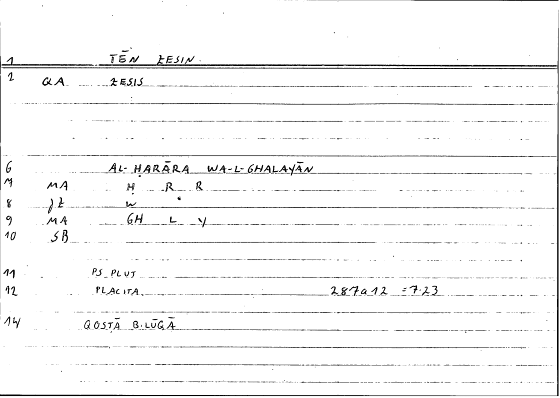 1 TĒN ZESIN
2 QA ZESIS
6 AL-ḤARĀRA WA-L-GHALAYĀN
7 MA Ḥ R R
8 JZ W
9 MA GH L Y
10 SB
11 PS_PLUT
12 PLACITA 287a12 = 7.23
14 QOSṬĀ B.LŪQĀ